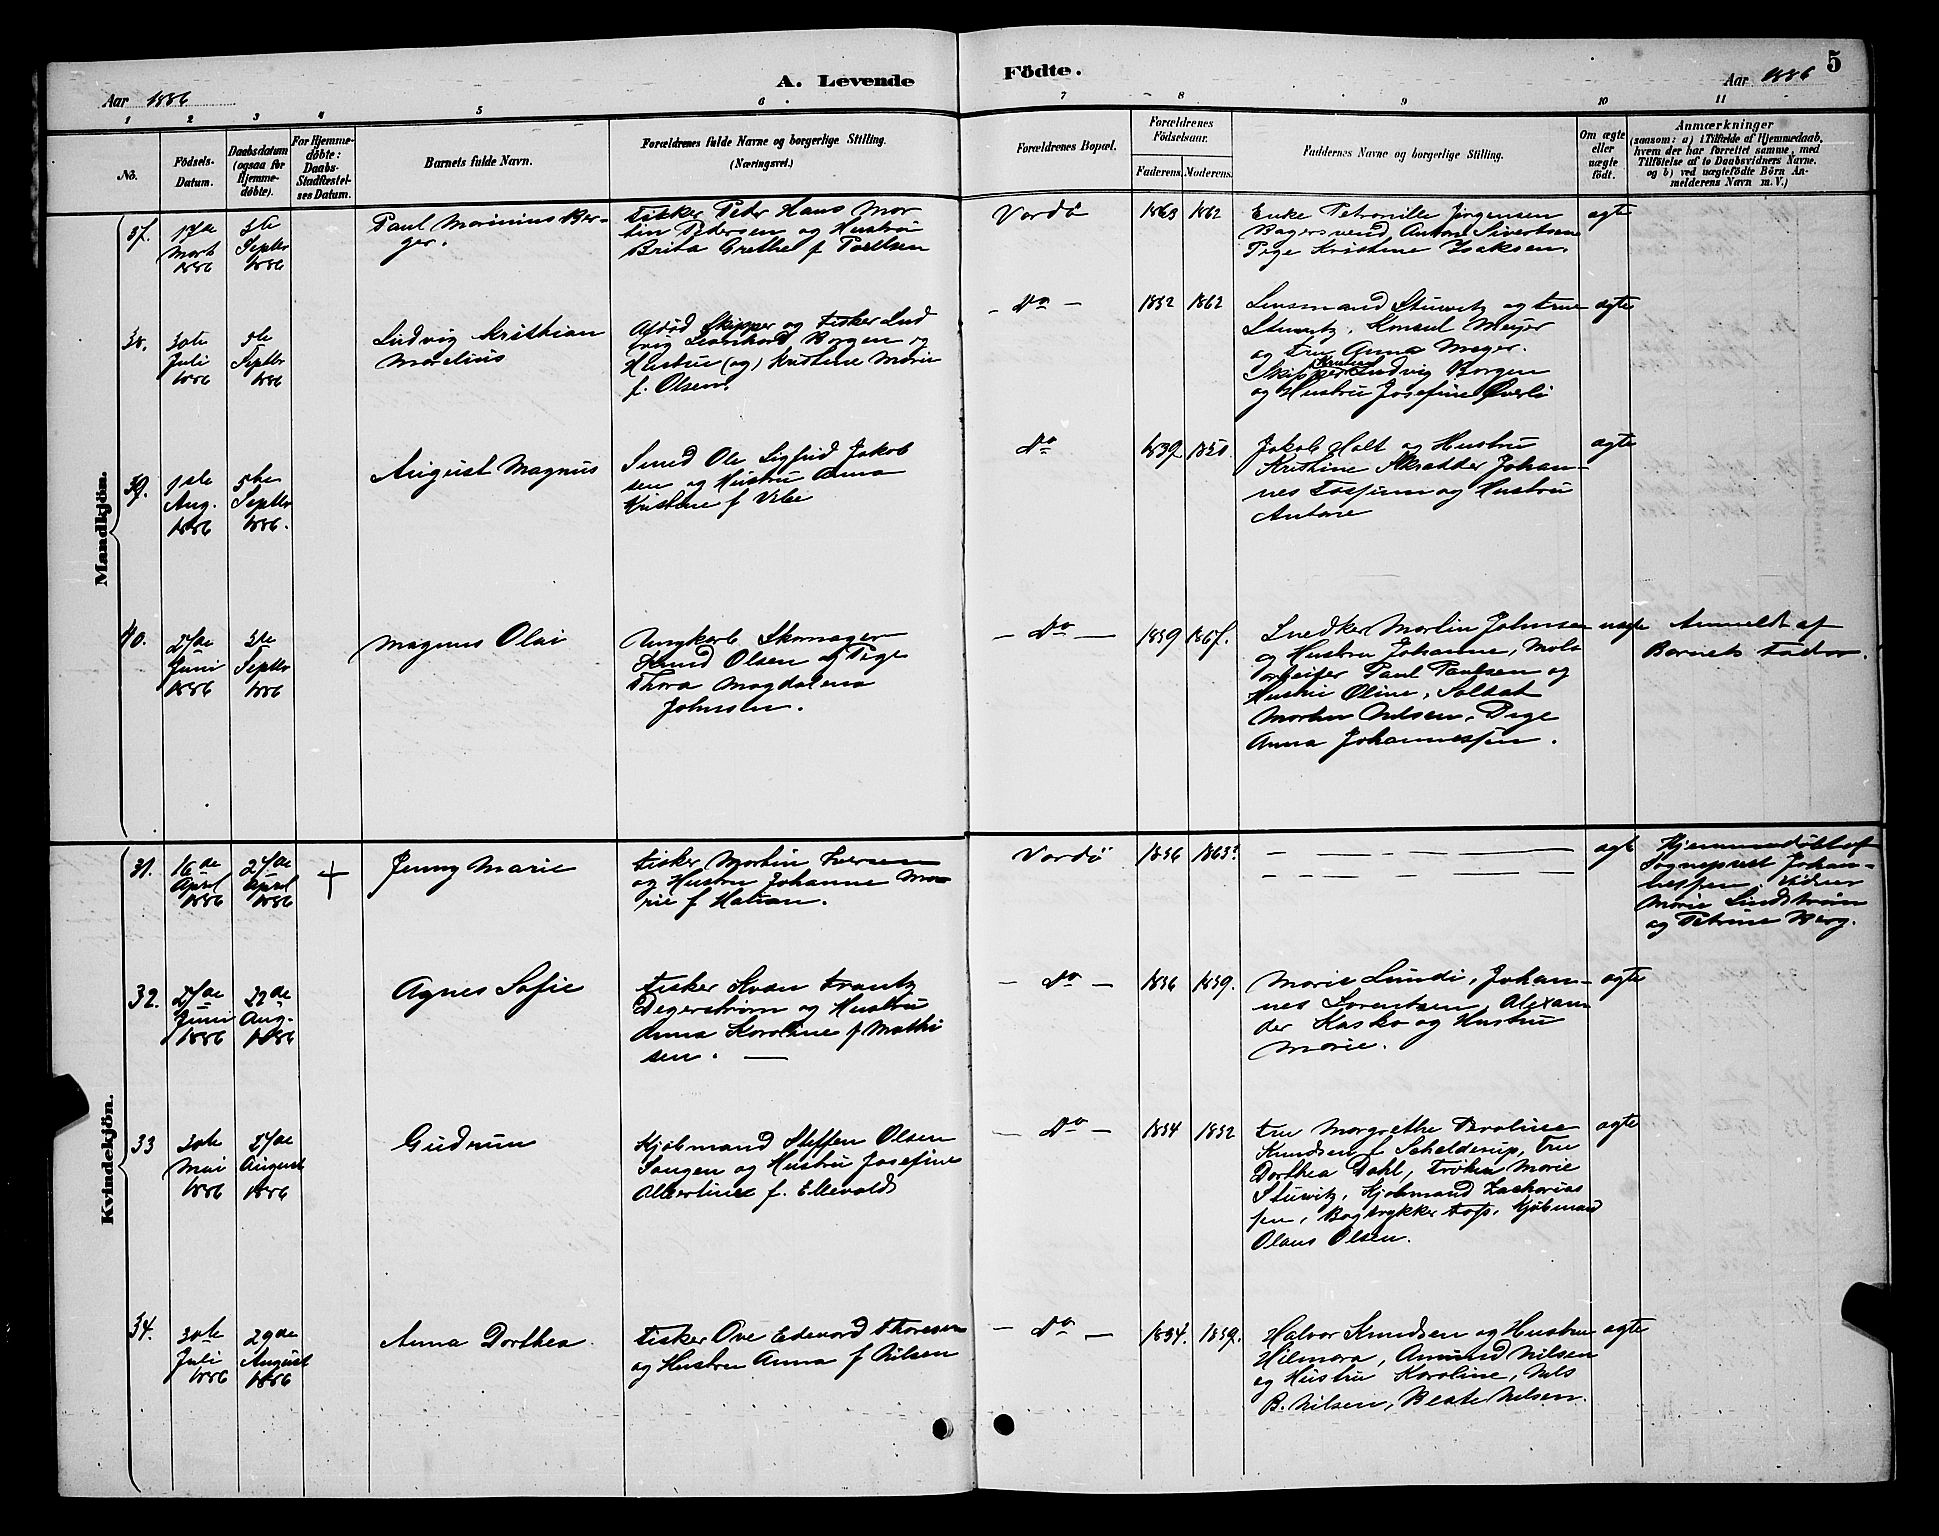 5
A. Levende Födte.
Aar 1886
Aar 1886
1 2 3 4 5 6 7 8 9 10 11
No.
Födsels-Datum.
Daabsdatum (ogsaa for Hjemmedöbte).
For Hjemmedöbte: Daabs-Stadfæstelses Datum.
Barnets fulde Navn.
Forældrenes fulde Navne og borgerlige Stilling. (Næringsvei.)
Forældrenes Bopæl.
Forældrenes Födselsaar.
Faderens. Moderens.
Faddernes Navne og borgerlige Stilling.
Om ægte eller uægte födt.
Anmærkninger
(saasom: a) i Tilfælde af Hjemmedaab,
hvem der har forrettet samme, med
Tilföielse af to Daabsvidners Navne.
og b) ved uægtefödte Börn An-
melderens Navn m. V.)
Mandkjön.
37.
17de
Marts
1886
5te
Septbr
1886
Paul Marinius Ber-
ger.
Fisker Peder Hans Mor
tin Pedersen og Hustru
Brita Grethe f Poulsen
Vardö
1863
1862
Enke Petronille Jørgensen
Bagersvend Anton Sivertsen
Pige Kristine Isaksen
ægte
38.
30te
Juli
1886
5te
Septbr
1886
Ludvig Kristian
Marelius
Afdød Skipper og Fisker Lud
vig Borgen og
Hustru (og) Kristine Marie
f. Olsen
- Do -
1852
1862
Lensmand Stuwitz og Frue
Stuwitz, Konsul Meyer
og Fru Anna Meyer.
Skipper Ludvig Borgen
og Hustru Josefine Øverli
ægte
39.
1ste
Aug.
1886
5te
Septbr
1886.
August Magnus
Smed Ole Sigfrid Jakob
sen og Hustru Anna
Kristine f Vibe
Do
1839
1850
Jakob Holt og Hustru
Kristine Skrædder Johan-
nes Fossum og Hustru
Antone
ægte
40.
27de
Juni
1886
5te
Septbr
1886
Magnus Olai
Ungkarl Skomager
Knud Olsen og Pige
Thora Magdalena
Johnsen.
- Do -
1859
Snedker Martin Johnsen
og Hustru Johanne,
Paul Paulsen og
Hustru Oline, Soldat
Morten Nilsen, Pige
Anna Johannessen.
uægte
Anmeldt af
Barnets Fader
Kvindekjön.
31.
16de
April
1886
27de
April
1886
+
Jenny Marie
Fisker Martin Iversen
og Hustru Johanne Ma-
rie f
Vardö
1856
1863
ægte
Hjemmedøbt af
Sogneprest Johan-
nessen. Vidner
Marie Lindstrøm
og Petrine Berg.
32.
27de
Juni
1886
22de
Aug.
1886
Agnes Sofie
Fisker Frantz
Degerstrøm og Hustru
Anna Karoline f Mathi
sen. -
- Do -
1856
1859.
Marie Lundi, Johan-
nes Lorentsen, Alexan
der Kasko og Hustru
Marie.
ægte
33
30te
Mai
1886
27de
August
1886
Gudrun
Kjøbmand Steffen Olsen
Sangen og Hustru Josefine
Albertine f. Ellevold
- Do -
1854
1852
Fru Margrethe
Knudsen f Schelderup, Fru
Dorthea Dahl, Frøken Marie
Stuwitz, Kjøbmand Zacharias
sen, Bogtrykker Foss, Kjøbmand
Olaus Olsen.
ægte
34.
30te
Juli
1886
29de
August
1886
Anna Dorthea.
Fisker Ove Edevard Thoresen
og Hustru Anna f Nilsen
- Do -
1854.
1859.
Halvor Knudsen og Hustru
Hilmara, Amund Nilsen
og Hustru Karoline, Nils
B. Nilsen, Beate Nilsen.
ægte